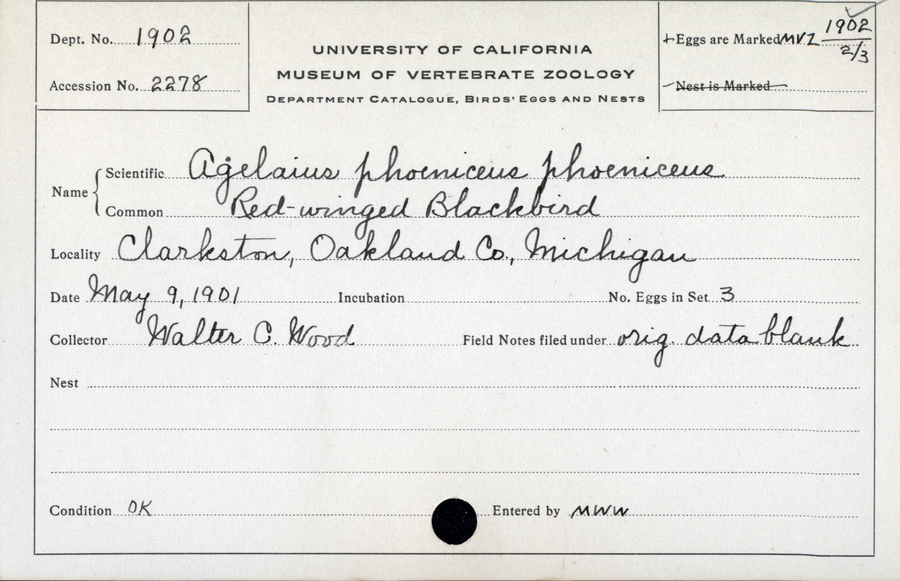 Dept. No. 1902
Accession No. 2278
UNIVERSITY OF CALIFORNIA
MUSEUM OF VERTEBRATE ZOOLOGY
DEPARTMENT CATALOGUE, BIRDS' EGGS AND NESTS
Eggs are Marked MVZ 1902
2/3
Nest is Marked
Name
Scientific Agelaius phoeniceus phoeniceus
Common Red-winged Blackbird
Locality Clarkston, Oakland Co., Michigan
Date May 9, 1901 Incubation No. Eggs in Set 3
Collector Walter C. Wood Field Notes filed under orig. data blank
Nest
Condition OK Entered by MWW